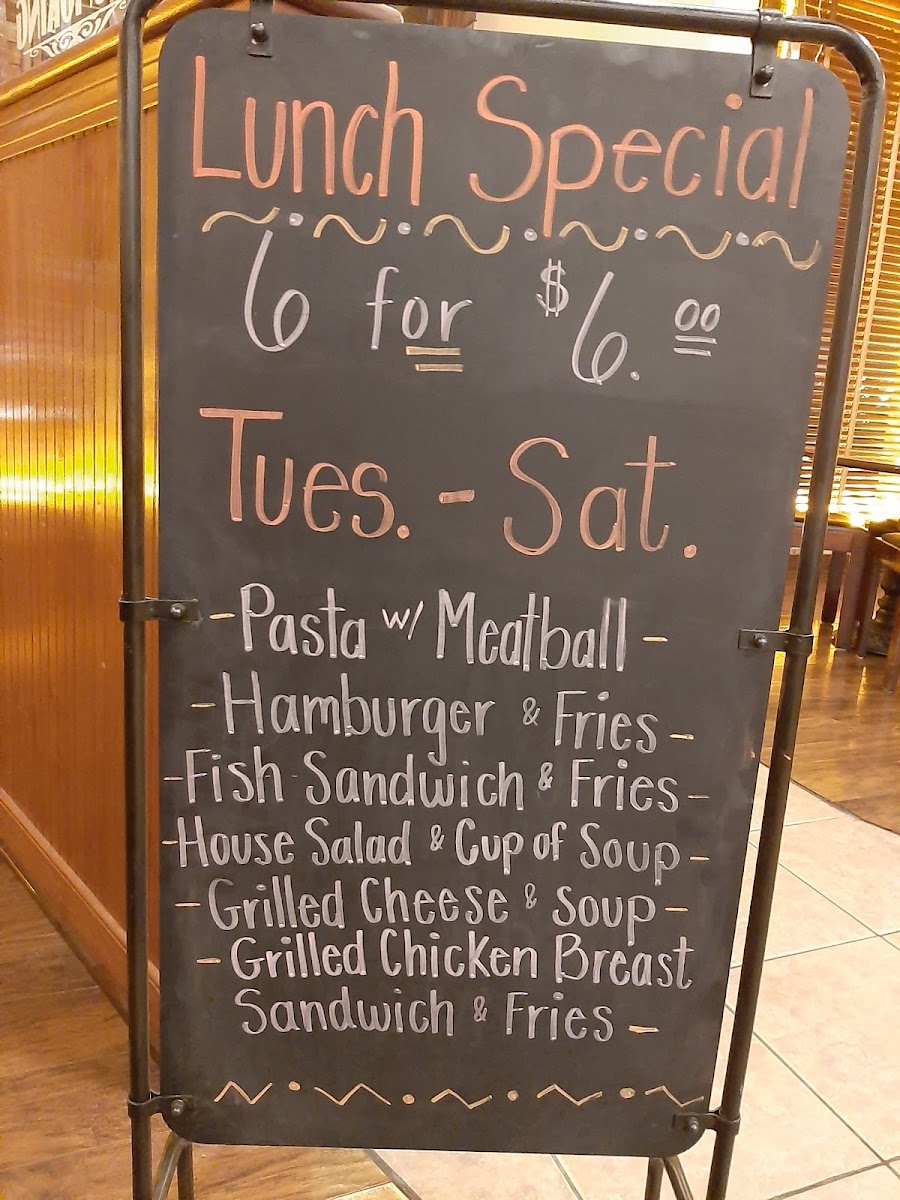 Lunch Special
6 for $6.00
Tues. - Sat.
- Pasta w/ Meatball -
- Hamburger & Fries -
- Fish Sandwich & Fries -
- House Salad & Cup of Soup -
- Grilled Cheese & Soup -
- Grilled Chicken Breast
Sandwich & Fries -